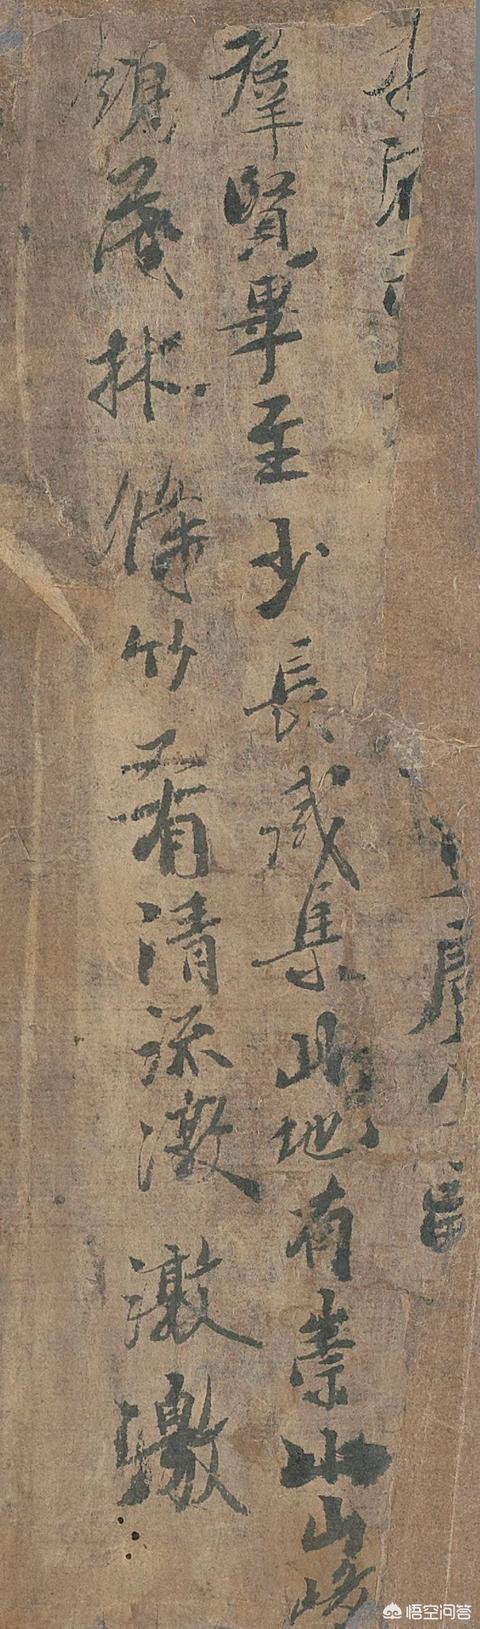 群賢畢至少長咸集此地有崇山山峻
領茂林脩竹又有清流激激激
悟空问答